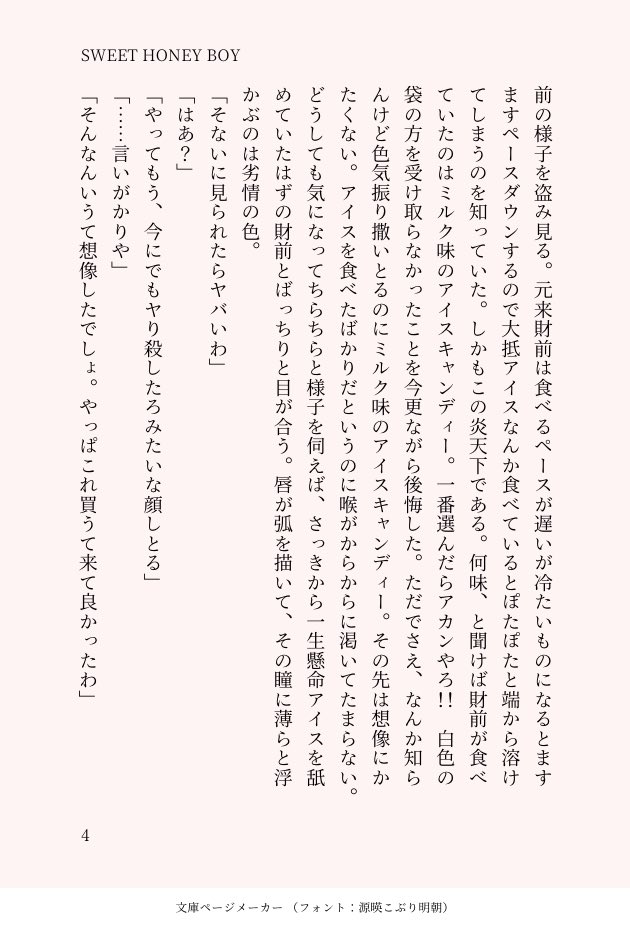 SWEET HONEY BOY
前の様子を盗み見る。元来財前は食べるペースが遅いが冷たいものになるとます
ますペースダウンするので大抵アイスなんか食べているとぽたぽたと端から溶け
てしまうのを知っていた。しかもこの炎天下である。何味、と聞けば財前が食べ
ていたのはミルク味のアイスキャンディー。一番選んだらアカンやろ!!　白色の
袋の方を受け取らなかったことを今更ながら後悔した。ただでさえ、なんか知ら
んけど色気振り撒いとるのにミルク味のアイスキャンディー。その先は想像にか
たくない。アイスを食べたばかりだというのに喉がからからに渇いてたまらない。
どうしても気になってちらちらと様子を伺えば、さっきから一生懸命アイスを舐
めていたはずの財前とばっちりと目が合う。唇が弧を描いて、その瞳に薄らと浮
かぶのは劣情の色。
「そないに見られたらヤバいわ」
「はあ？」
「やってもう、今にでもヤり殺したろみたいな顔しとる」
「……言いがかりや」
「そんなんいうて想像したでしょ。やっぱこれ買うて来て良かったわ」
4
文庫ページメーカー （フォント：源暎こぶり明朝）